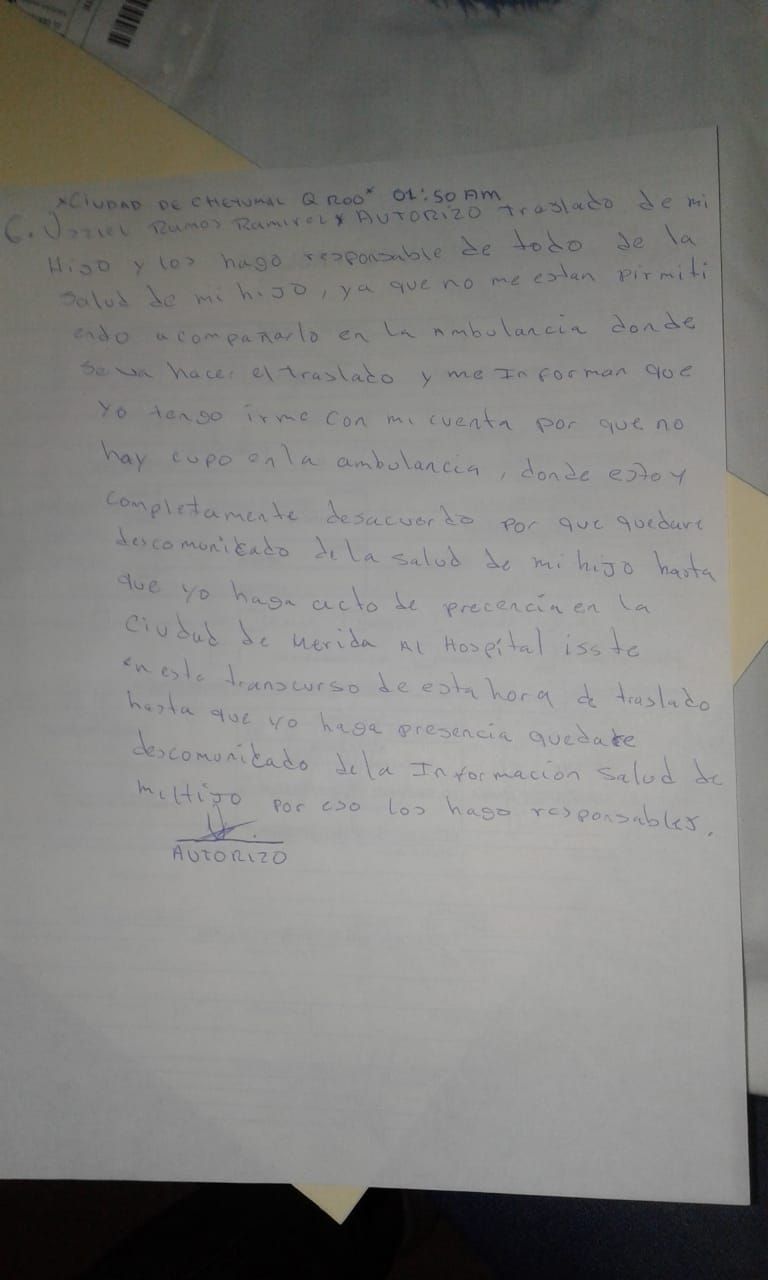 *CIUDAD DE CHETUMAL Q ROO* 01:50 AM
C. Ramos Ramirez AUTORIZO traslado de mi
Hijo y los hago responsable de todo de la
Salud de mi hijo, ya que no me estan pirmiti
endo acompañarlo en la Ambulancia donde
se va hacer el traslado y me Informan que
Yo tengo irme con mi cuenta por que no
hay cupo en la ambulancia, donde estoy
completamente desacuerdo por que quedare
descomunicado de la salud de mi hijo hasta
que yo haga acto de precencia en la
Ciudad de Merida Al Hospital isste
en este transcurso de esta hora de traslado
hasta que yo haga presencia quedare
descomunicado de la Informacion Salud de
mi Hijo por eso los hago responsables.
AUTORIZO